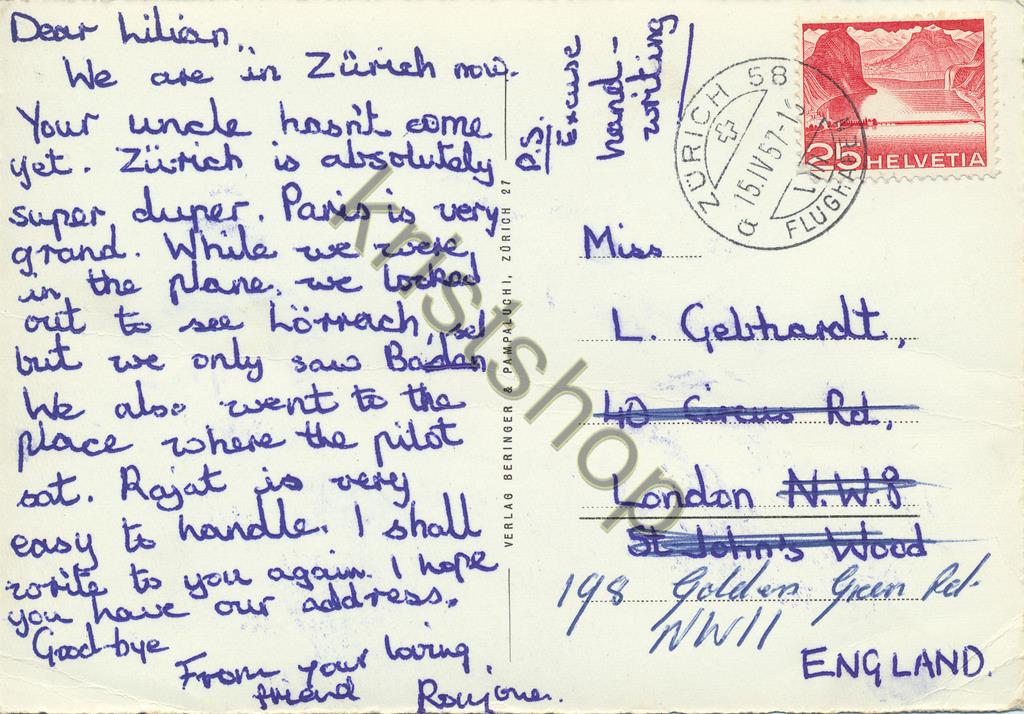 Dear Lilian,
We are in Zürich now.
Your uncle hasn't come
yet. Zürich is absolutely
super duper. Paris is very
grand. While we were
in the plane, we looked
out to see Lörrach,
but we only saw Baden
We also went to the
place where the pilot
sat. Rajat is very
easy to handle. I shall
write to you again. I hope
you have our address.
Good-bye
From your loving
friend
P.S.
Excuse
hand-
writing
VERLAG BERINGER & PAMPALUCHI, ZÜRICH 27
ZÜRICH 58
15.IV 57-1
FLUGHAFEN
a
25 HELVETIA
Miss
L. Gebhardt,
40 Circus Rd,
London N.W.8
St. John's Wood
198 Golders Green Rd
NW11
ENGLAND.
kristshop